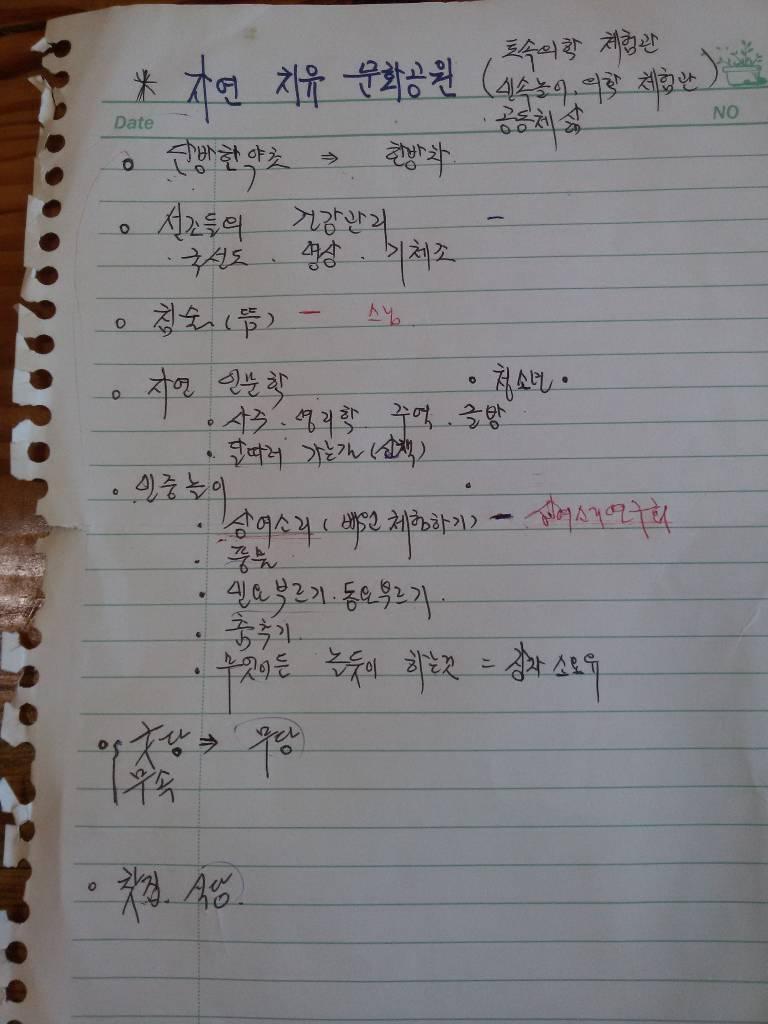 * 자연 치유 문화공원 (토속의학 체험관
민속놀이. 의학 체험관)
· 공동체 삶
Date
NO
○ 단방한약초 ⇒ 한방차
○ 선조들의 건강관리 -
· 국선도 · 명상 · 기체조
○ 침술 (뜸) - 스님
○ 자연 인문학 • 청소년 •
• 사주 · 명리학 주역 · 글방
• 달따러 가는길 (산책)
• 민중놀이
• 상여소리 (배워 체험하기) - 상여소리연구회
• 풍물
• 민요부르기 · 동요부르기.
• 춤추기.
• 무엇이든 놀듯이 하는것 = 장자 소요유
○ 굿당 ⇒ 무당
무속
○ 찻집. 식당.